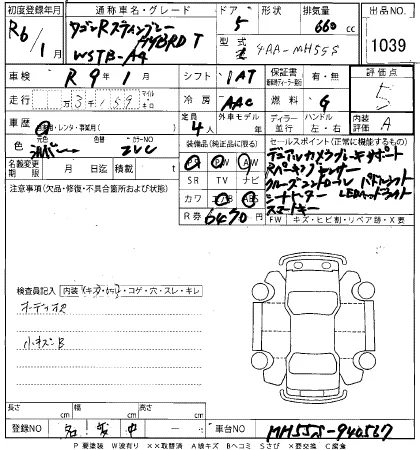 初度登録年月 通称車名・グレード ドア 形状 排気量 出品NO
R6/1月 ワゴンRスティングレー HYBRID T 5 660cc 1039
WSTB-A4 型式 4AA-MH55S
車検 R9年1月 シフト 1AT 保証書 有・無 評価点
走行 万3千159 マイル キロ 冷房 AAC 燃料 G 5
車歴 自家用・レンタ・事業用( ) 定員 4人 外車モデル年 ディーラー 並行 ハンドル 左・右 内装 A
色 シルバー 色替 カラーNO Z2VC 装備品(純正品に限る) セールスポイント(正常に機能するもの)
名義変更期限 月 日迄 積載 t PS PW AW デュアルカメラブレーキサポート
注意事項(欠品・修復・不具合箇所および状態) SR TV ナビ Rパーキングセンサー
カワ AB ABS クルーズコントロール パドルシフト
シートヒーター LEDヘッドライト
R券 6430円 スマートキー
FW キズ・ヒビ割・リペア跡・X要
検査員記入 内装(キズ・カケ)・コゲ・穴・スレ・キレ
オーディオレス
小キズコB
長さ cm 幅 cm 高さ cm
登録NO 名変中 — 車台NO MH55S-940567
P 要塗装 W波有り ××取替済 A線キズ Bヘコミ Sさび ×要交換 C腐食